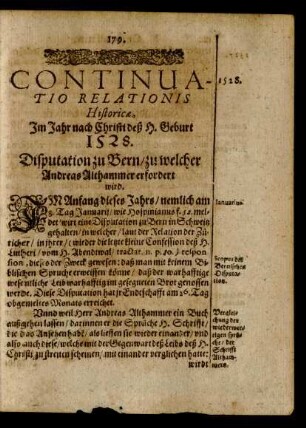 179.
CONTINUA-
TIO RELATIONIS
Historicæ,
Im Jahr nach Christi deß H. Geburt
1528.
1528.
Disputation zu Bern/zu welcher
Andreas Althammer erfordert
wird.
IM Anfang dieses Jahrs / nemlich am
Tag Januarii/ wie Hospinianus f. 52. mel-
det/ wirt eine Disputation zu Bern in Schweiz
gehalten/ in welcher/ laut der Relation der Zü-
richer / in ihrer / ( wieder die letzte kleine Confession deß H.
Lutheri/ vom H. Abendmal/ respon-
sion, dieses der Zweck gewesen: daß man mit keinem Bi-
blischen Spruche erweissen könne / daß der warhafftige
wesentliche Leib warhafftig im gesegneten Brot genossen
werde. Diese Disputation hat ihr Endschafft am 26. Tag
obgemeltes Monats erreichet.
Januarius.
Scopus der
Bernischen
Disputa-
tion.
Vnnd weil Herr Andreas Althammer ein Buch
außgehen lassen / darinnen er die Sprüche H. Schrifft /
die das Ansehen habē / als lieffen sie wieder einander / vnd
also auch diese/ welche mit der Gegenwart deß Leibs deß H.
Christi zu streiten scheinen / mit einander verglichen hatte:
wirdt
Verglei-
chung der
wiederwer-
tigen
der
Schrifft
Altham-
mers.